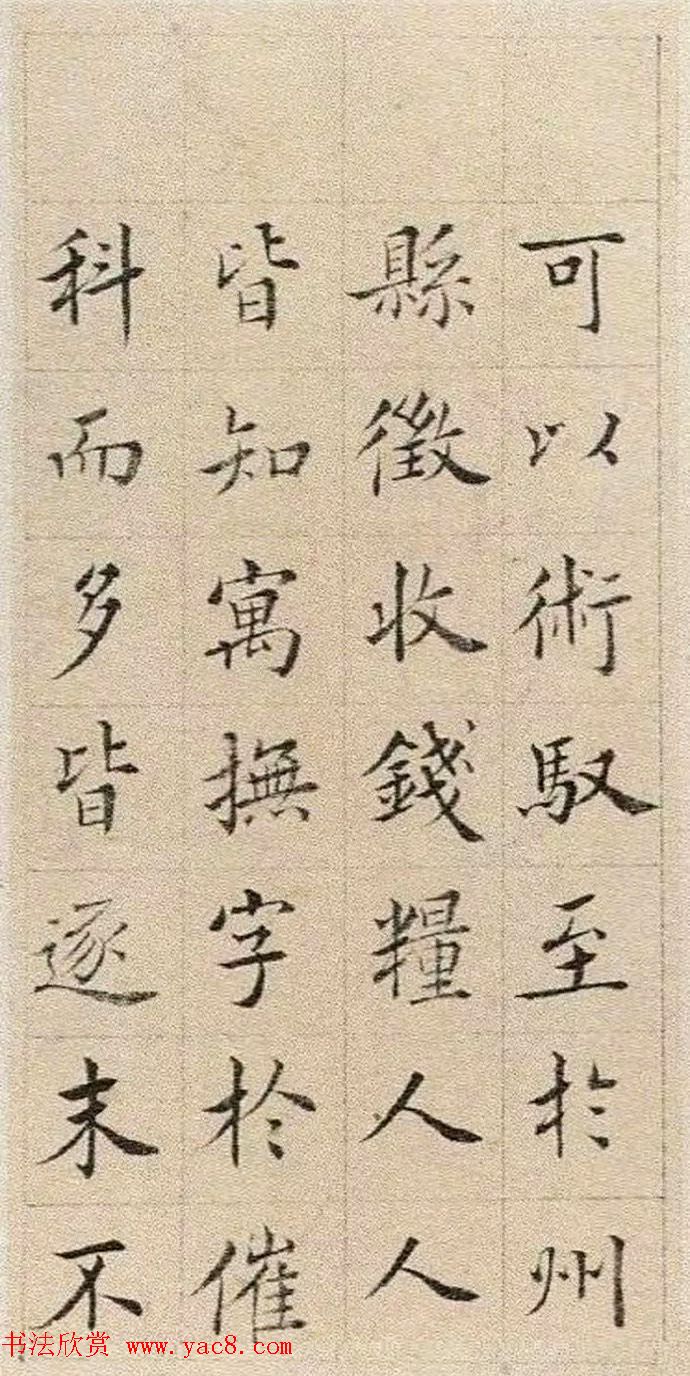 可以術馭至於州
縣徵收錢糧人人
皆知寓撫字於催
科而多皆逐末不
书法欣赏 www.yac8.com